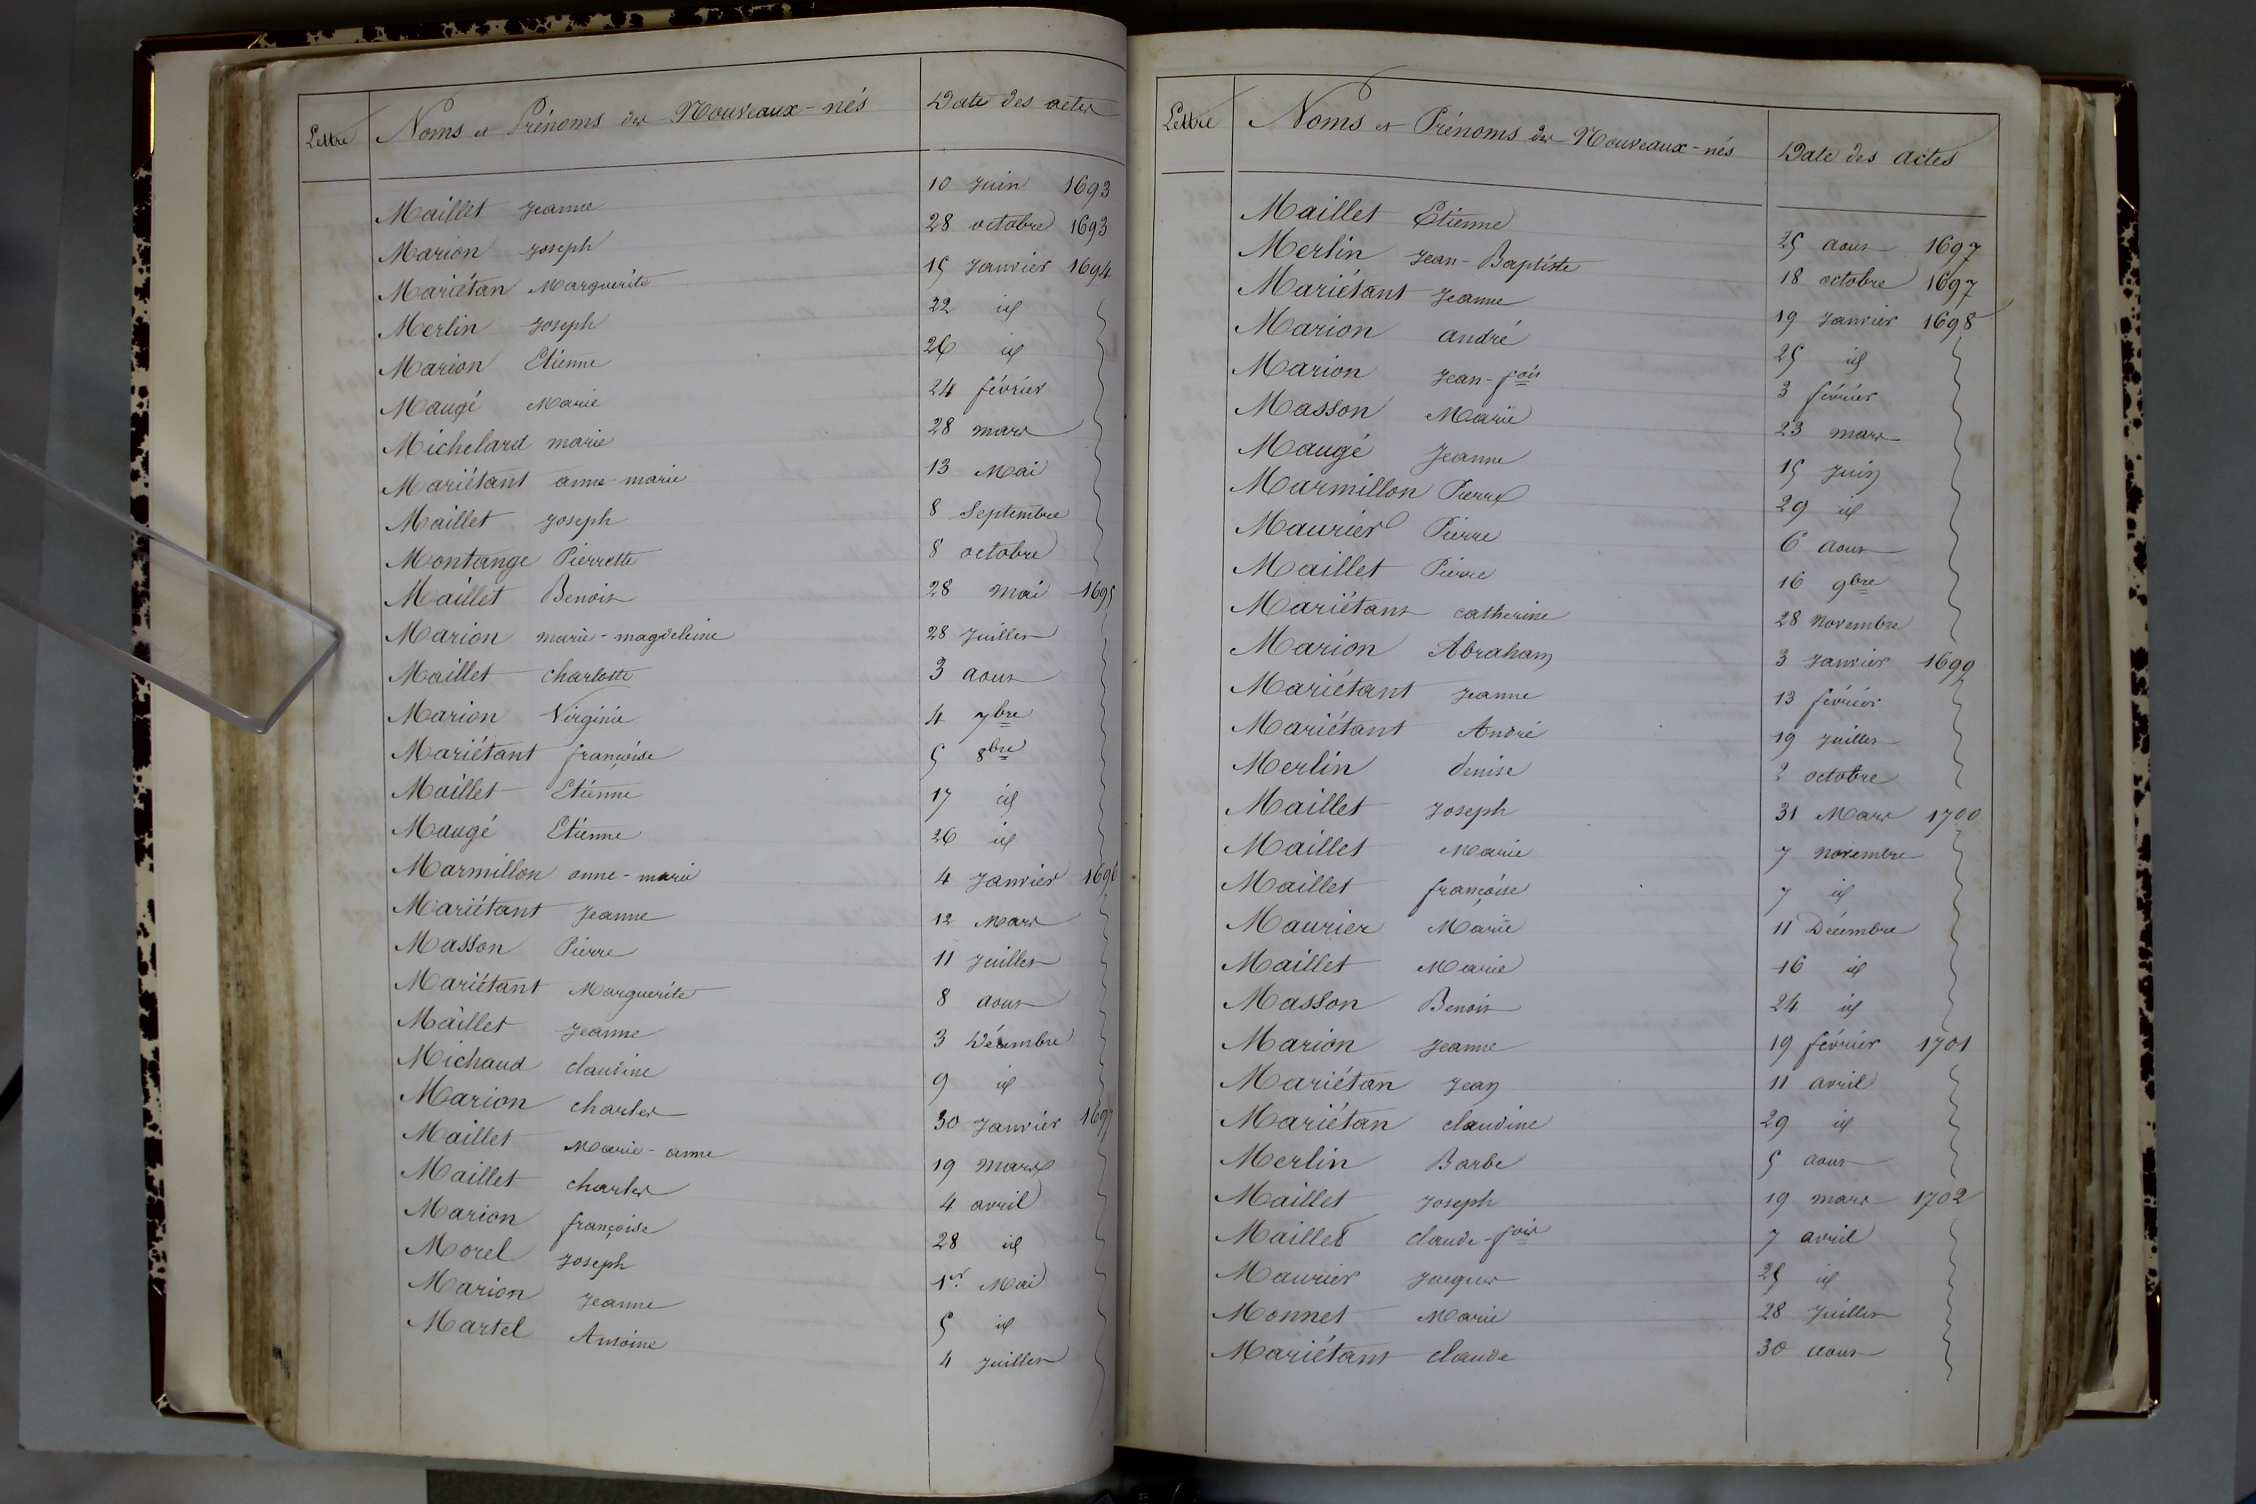 Lettre Noms et Prénoms des Nouveaux-nés Date des actes
Maillet Jeanne 10 Juin 1693
Marion Joseph 28 octobre 1693
Mariétan Marguerite 15 Janvier 1694
Merlin Joseph 22 id
Marion Etienne 26 id
Maugé Marie 24 février
Michelard marie 28 mars
Mariétant anne-marie 13 Mai
Maillet Joseph 8 Septembre
Montange Pierrette 8 octobre
Maillet Benoit 28 Mai 1695
Marion marie-magdeleine 28 Juillet
Maillet charlotte 3 aout
Marion Virginie 4 7bre
Mariétant françoise 5 8bre
Maillet Etienne 17 id
Maugé Etienne 26 id
Marmillon anne-marie 4 Janvier 1696
Mariétant Jeanne 12 Mars
Masson Pierre 11 Juillet
Mariétant Marguerite 8 aout
Maillet Jeanne 3 Décembre
Michaud claudine 9 id
Marion charles 30 Janvier 1697
Maillet Marie-anne 19 Mars
Maillet charles 4 avril
Marion françoise 28 id
Morel Joseph 1er Mai
Marion Jeanne 5 id
Martel Antoine 4 Juillet
Lettre Noms et Prénoms des Nouveaux-nés Date des actes
Maillet Etienne 25 aout 1697
Merlin Jean-Baptiste 18 octobre 1697
Mariétant Jeanne 19 Janvier 1698
Marion andré 25 id
Marion Jean-fois 3 février
Masson Marie 23 mars
Maugé Jeanne 15 Juin
Marmillon Pierre 29 id
Maurier Pierre 6 aout
Maillet Pierre 16 9bre
Mariétant catherine 28 Novembre
Marion Abraham 3 Janvier 1699
Mariétant Jeanne 13 février
Mariétant André 19 Juillet
Merlin denise 2 octobre
Maillet Joseph 31 Mars 1700
Maillet Marie 7 Novembre
Maillet françoise 7 id
Maurier Marie 11 Décembre
Maillet Marie 16 id
Masson Benoit 24 id
Marion Jeanne 19 février 1701
Mariétan Jean 11 avril
Mariétan claudine 29 id
Merlin Barbe 5 aout
Maillet Joseph 19 mars 1702
Maillet claude-fois 7 avril
Maurier Jacques 25 id
Monnet Marie 28 Juillet
Mariétant claude 30 aout